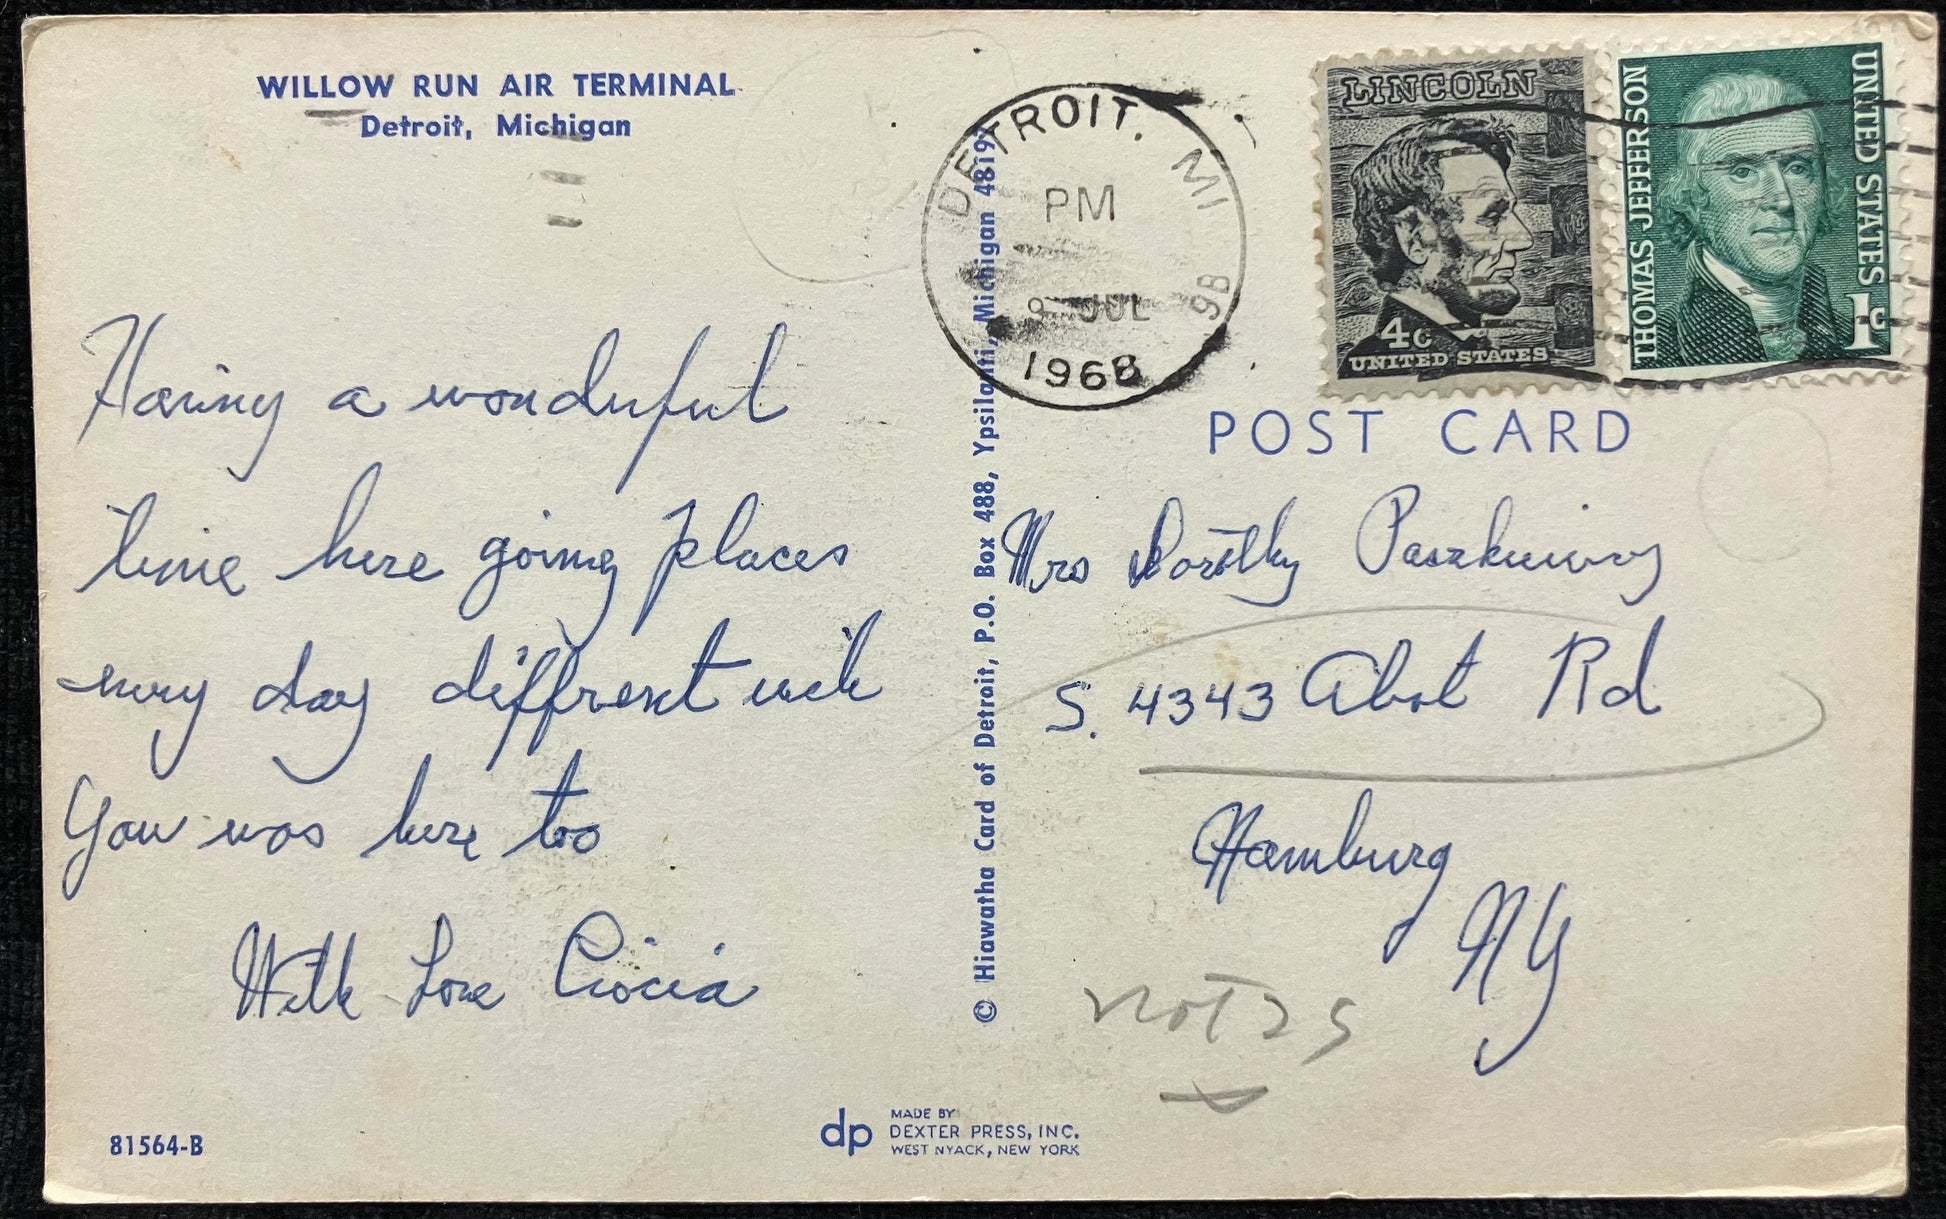 WILLOW RUN AIR TERMINAL
Detroit, Michigan
Having a wonderful
time here going places
every day different wich
You was here too
With Love Ciocia
81564-B
dp
MADE BY
DEXTER PRESS, INC.
WEST NYACK, NEW YORK
© Hiawatha Card of Detroit, P.O. Box 488, Ypsilanti, Michigan 48197
DETROIT, MI
PM
9 JUL
1968
LINCOLN
4c
UNITED STATES
THOMAS JEFFERSON
UNITED STATES
1c
POST CARD
Mrs Dorothy
S. 4343 Abot Rd
Hamburg
NY
not 25